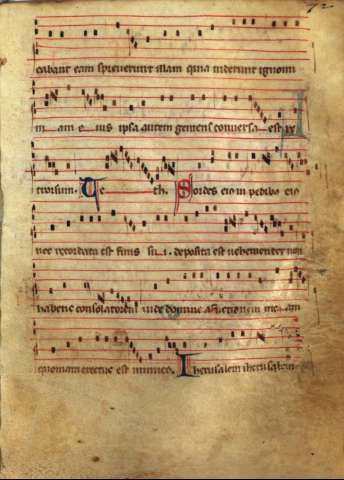 72
cabant eam spreverunt illam quia viderunt ignomi
ni am e ius ipsa autem gemens conversa est re
trorsum. Te th. Sordes eius in pedibus eius
nec recordata est finis su i. deposita est vehementer non
habens consolatorem vide domine afflictionem me am
quoniam erectus est inimicus. Iherusalem iherusalem